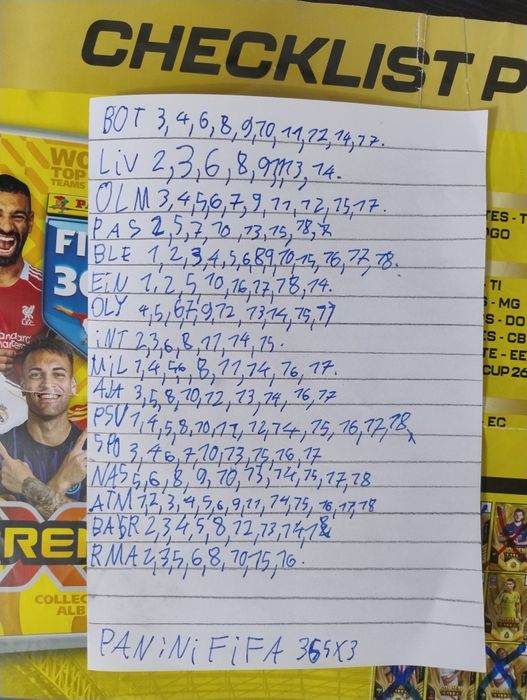 CHECKLIST P
BOT 3,4,6,8,9,10,11,12,14,17.
LiV 2,3,6,8,9,11,13,14.
OLM 3,4,5,6,7,9,11,12,15,17.
PAS 2,5,7,10,13,15,18,
BLE 1,2,3,4,5,6,8,9,10,15,16,17,18.
EiN 1,2,5,10,16,17,18,14.
OLY 4,5,6,7,9,12,13,14,15,17
iNT 2,3,6,8,11,14,15.
MiL 1,4,5,6,8,11,14,16,17.
AJA 3,5,8,10,12,13,14,16,17
PSV 1,4,5,8,10,11,12,14,15,16,17,18,
SPO 3,4,6,7,10,13,15,16,17
NAS 5,6,8,9,10,13,14,15,17,18
ATM 1,2,3,4,5,6,9,11,14,15,16,17,18
BAR 2,3,4,5,8,12,13,14,18
RMA 2,3,5,6,8,10,15,16.
PANiNi FiFA 365X3
WO
TOP
TEAMS
FI
36
REN
COLLEC
ALB
TES - T
OGO
- TI
S - MG
S - DO
S - CB
TE - EE
CUP 26
EC